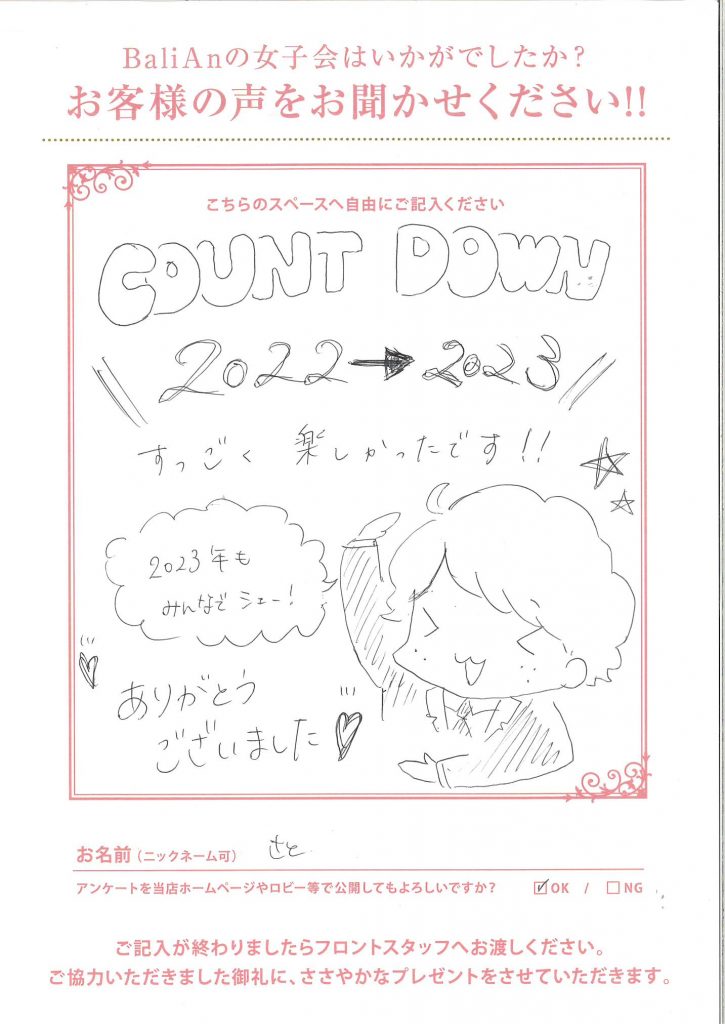 BaliAnの女子会はいかがでしたか？
お客様の声をお聞かせください!!
こちらのスペースへ自由にご記入ください
COUNT DOWN
2022→2023
すっごく 楽しかったです!!
2023年も
みんなで シェー!
ありがとう
ございました
お名前（ニックネーム可） さと
アンケートを当店ホームページやロビー等で公開してもよろしいですか？ ☑OK / □NG
ご記入が終わりましたらフロントスタッフへお渡しください。
ご協力いただきました御礼に、ささやかなプレゼントをさせていただきます。